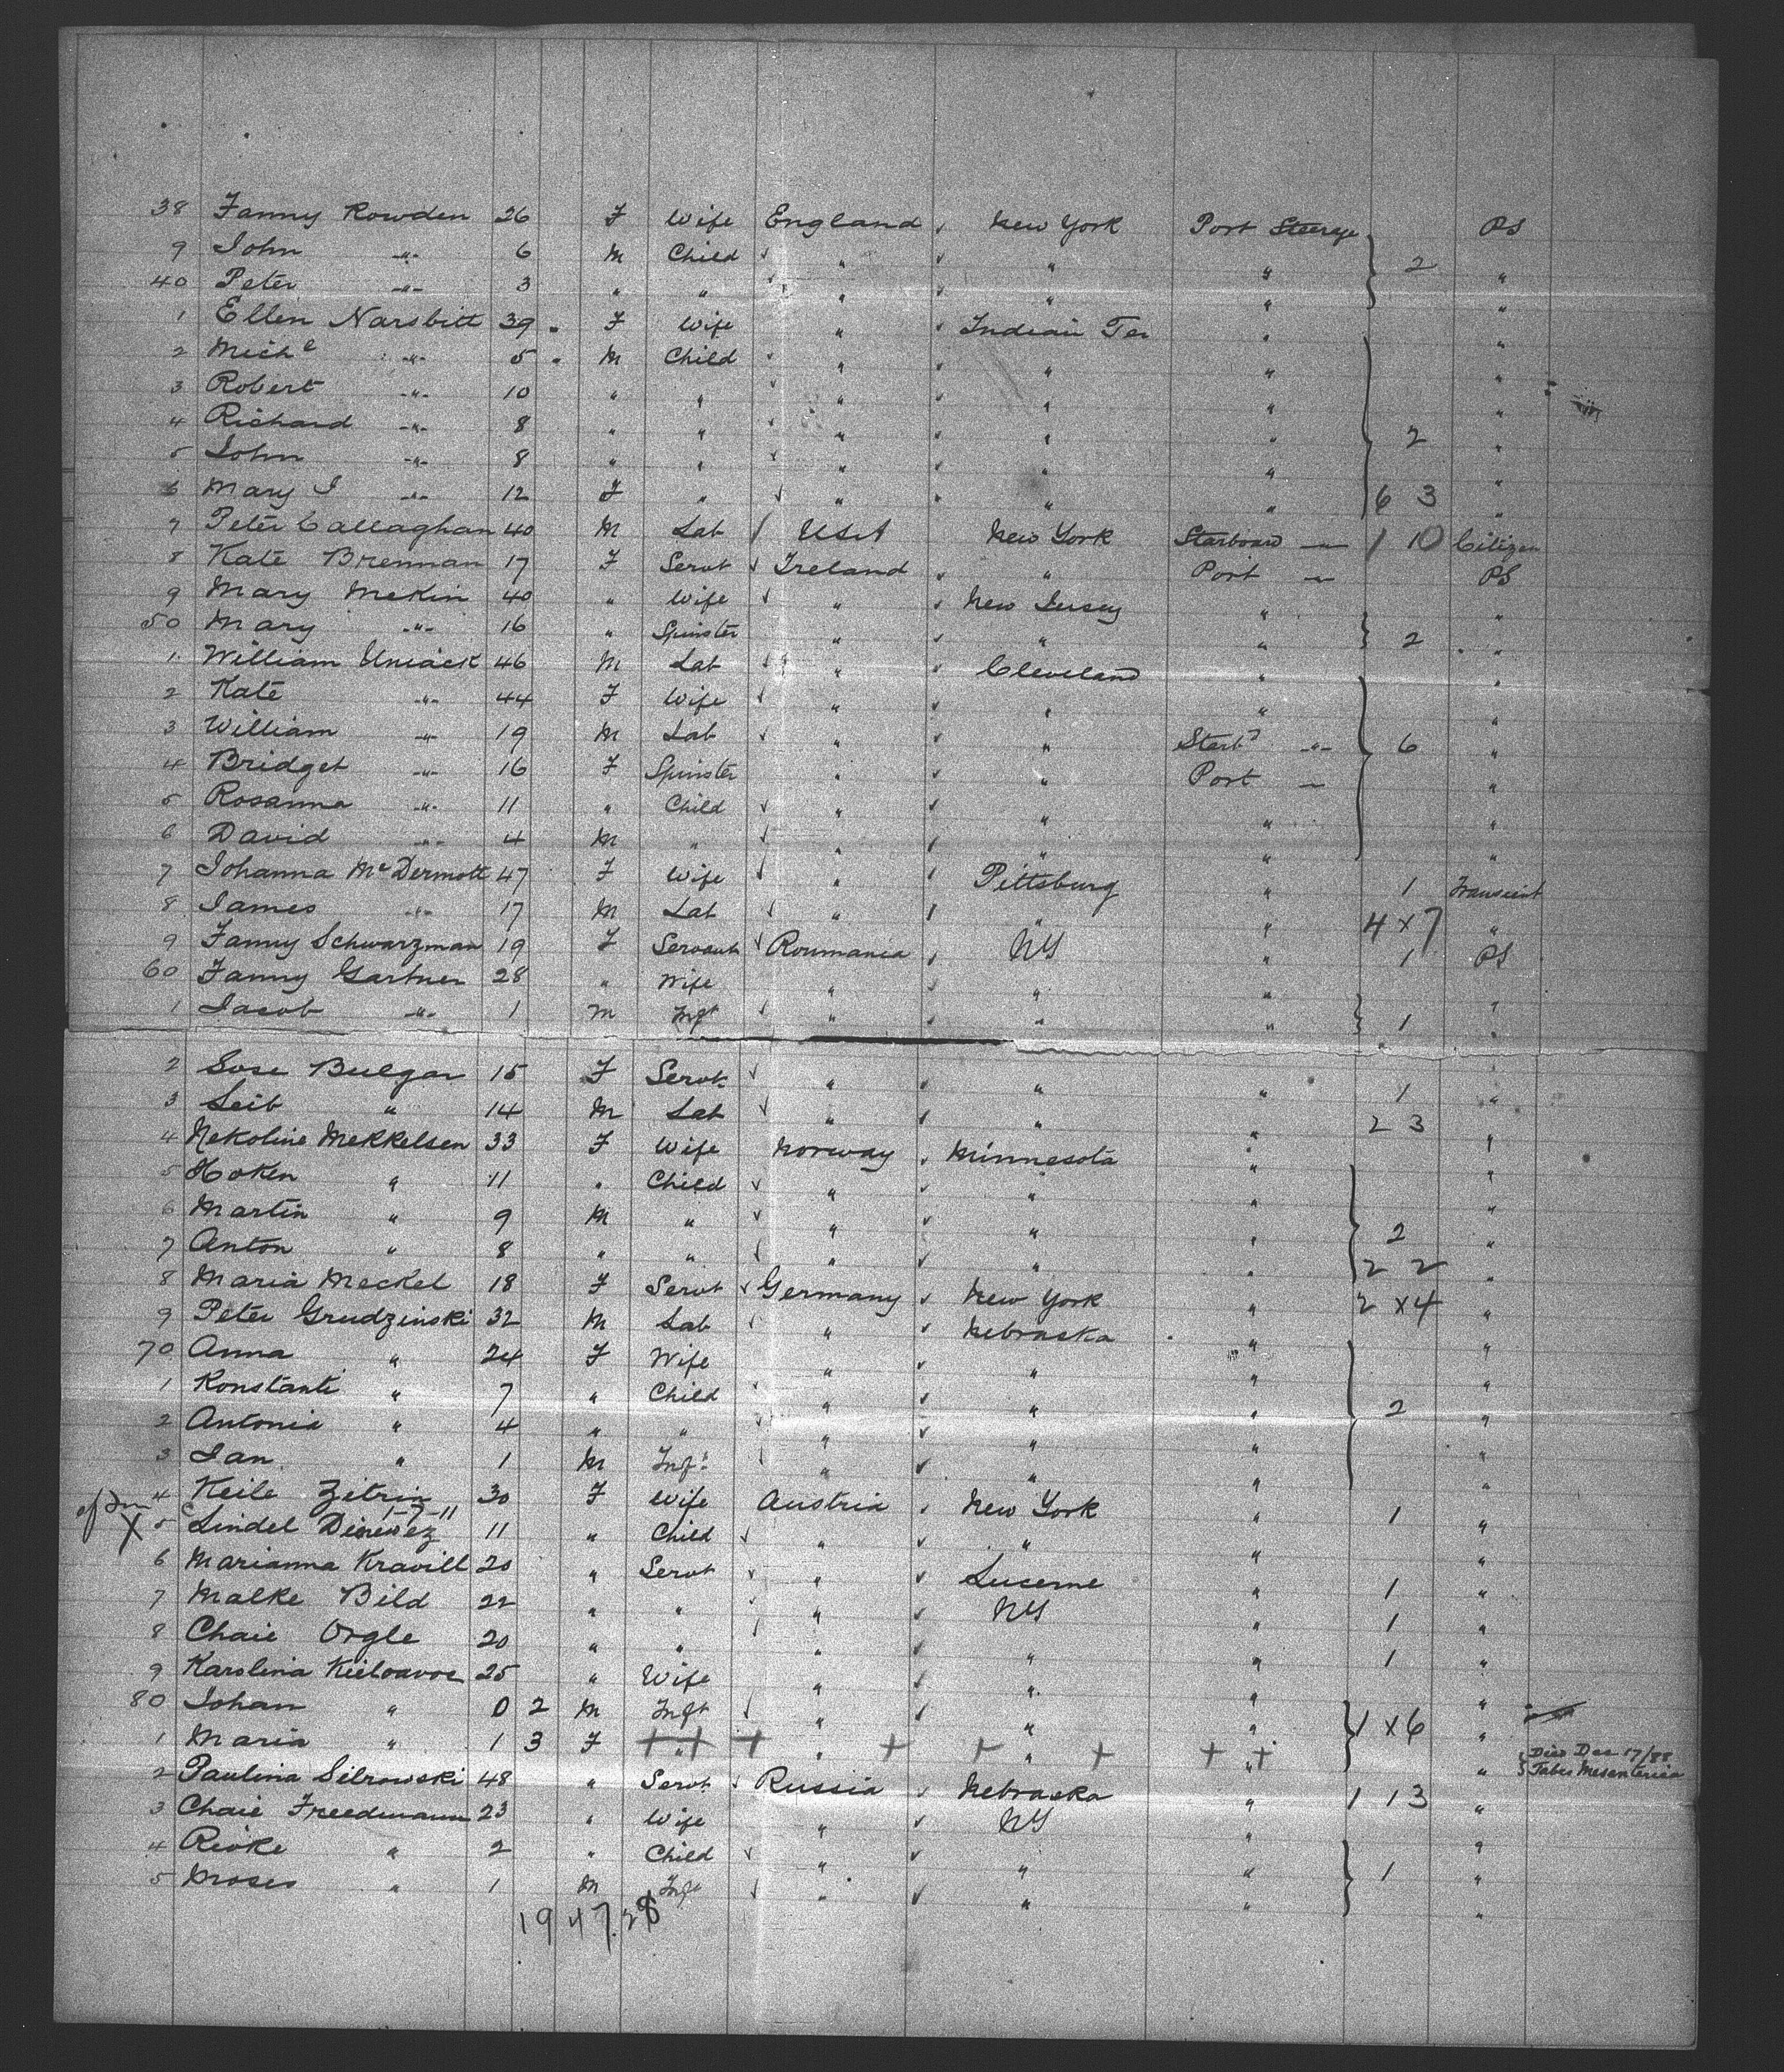 38 Fanny Rowden 26 F Wife England New York Port Steerage PS
9 John " 6 M Child " " " 2 "
40 Peter " 3 " " " " " "
1 Ellen Narsbitt 39 F Wife " Indian Ter " "
2 Mich^l " 5 M Child " " " "
3 Robert " 10 " " " " " "
4 Richard " 8 " " " " " 2 "
5 John " 8 " " " " " "
6 Mary J " 12 F " " " " 6 3 "
7 Peter Callaghan 40 M Lab USA New York Starboard " 1 10 Citizen
8 Kate Brennan 17 F Servt Ireland " Port " PS
9 Mary McKin 40 " Wife " New Jersey " "
50 Mary " 16 " Spinster " " " 2 "
1 William Uniack 46 M Lab " Cleveland " "
2 Kate " 44 F Wife " " " "
3 William " 19 M Lab " " Starbd " 6 "
4 Bridget " 16 F Spinster " " Port " "
5 Rosanna " 11 " Child " " " "
6 David " 4 M " " " " "
7 Johanna McDermott 47 F Wife " Pittsburg " 1 Transient
8 James " 17 M Lab " " " 4 x 7 "
9 Fanny Schwarzman 19 F Servant Roumania NY " 1 PS
60 Fanny Gartner 28 " Wife " " " "
1 Jacob " 1 M Inft " " " 1 "
2 Sose Bulgar 15 F Servt " " " 1 "
3 Leib " 14 M Lab " " " 2 3 "
4 Nekoline Mekkelsen 33 F Wife Norway Minnesota " "
5 Hoken " 11 " Child " " " "
6 Martin " 9 M " " " " 2 "
7 Anton " 8 " " " " " 2 2 "
8 Maria Meckel 18 F Servt Germany New York " 2 x 4 "
9 Peter Grudzinski 32 M Lab " Nebraska " "
70 Anna " 24 F Wife " " " "
1 Konstanti " 7 " Child " " " 2 "
2 Antonia " 4 " " " " " "
3 Jan " 1 M Inft " " " "
4 Keile Zitrin 30 F Wife Austria New York " 1 "
X 5 Lindel Dinewez 11 " Child " " " "
6 Marianna Kravill 20 " Servt " Lucerne " 1 "
7 Malke Bild 22 " " " NY " 1 "
8 Chaie Orgle 20 " " " " " 1 "
9 Karolina 25 " Wife " " " "
80 Johan " 0 2 M Inft " " " 1 x 6 "
1 Maria " 1 3 F " " " " " Died Dec 17/88 Tabes Mesenterica
2 Paulina Silrowski 48 " Servt Russia Nebraska " 1 13 "
3 Chaie Freedmann 23 " Wife " NY " "
4 Rivke " 2 " Child " " " 1 "
5 Moses " 1 M Inft " " " "
19 47.28